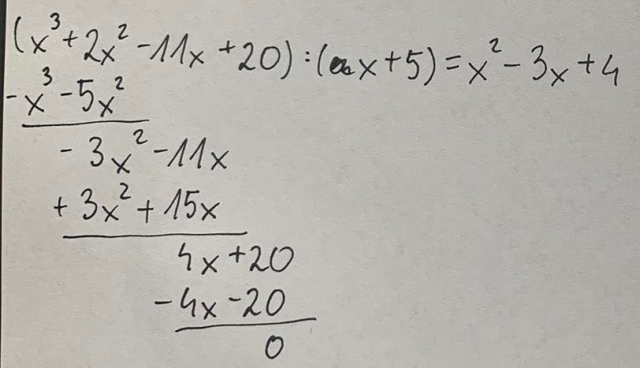 (x³+2x²-11x+20):(x+5)=x²-3x+4
-x³-5x²
-3x²-11x
+3x²+15x
4x+20
-4x-20
0